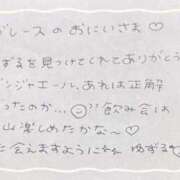 グレースのおにいさま♡
ずるを見つけてくれてありがとう
ンジャエール、あれは正解
ったのか…飲み会は
山楽しめたかな～♡
に会えますように ゆずる